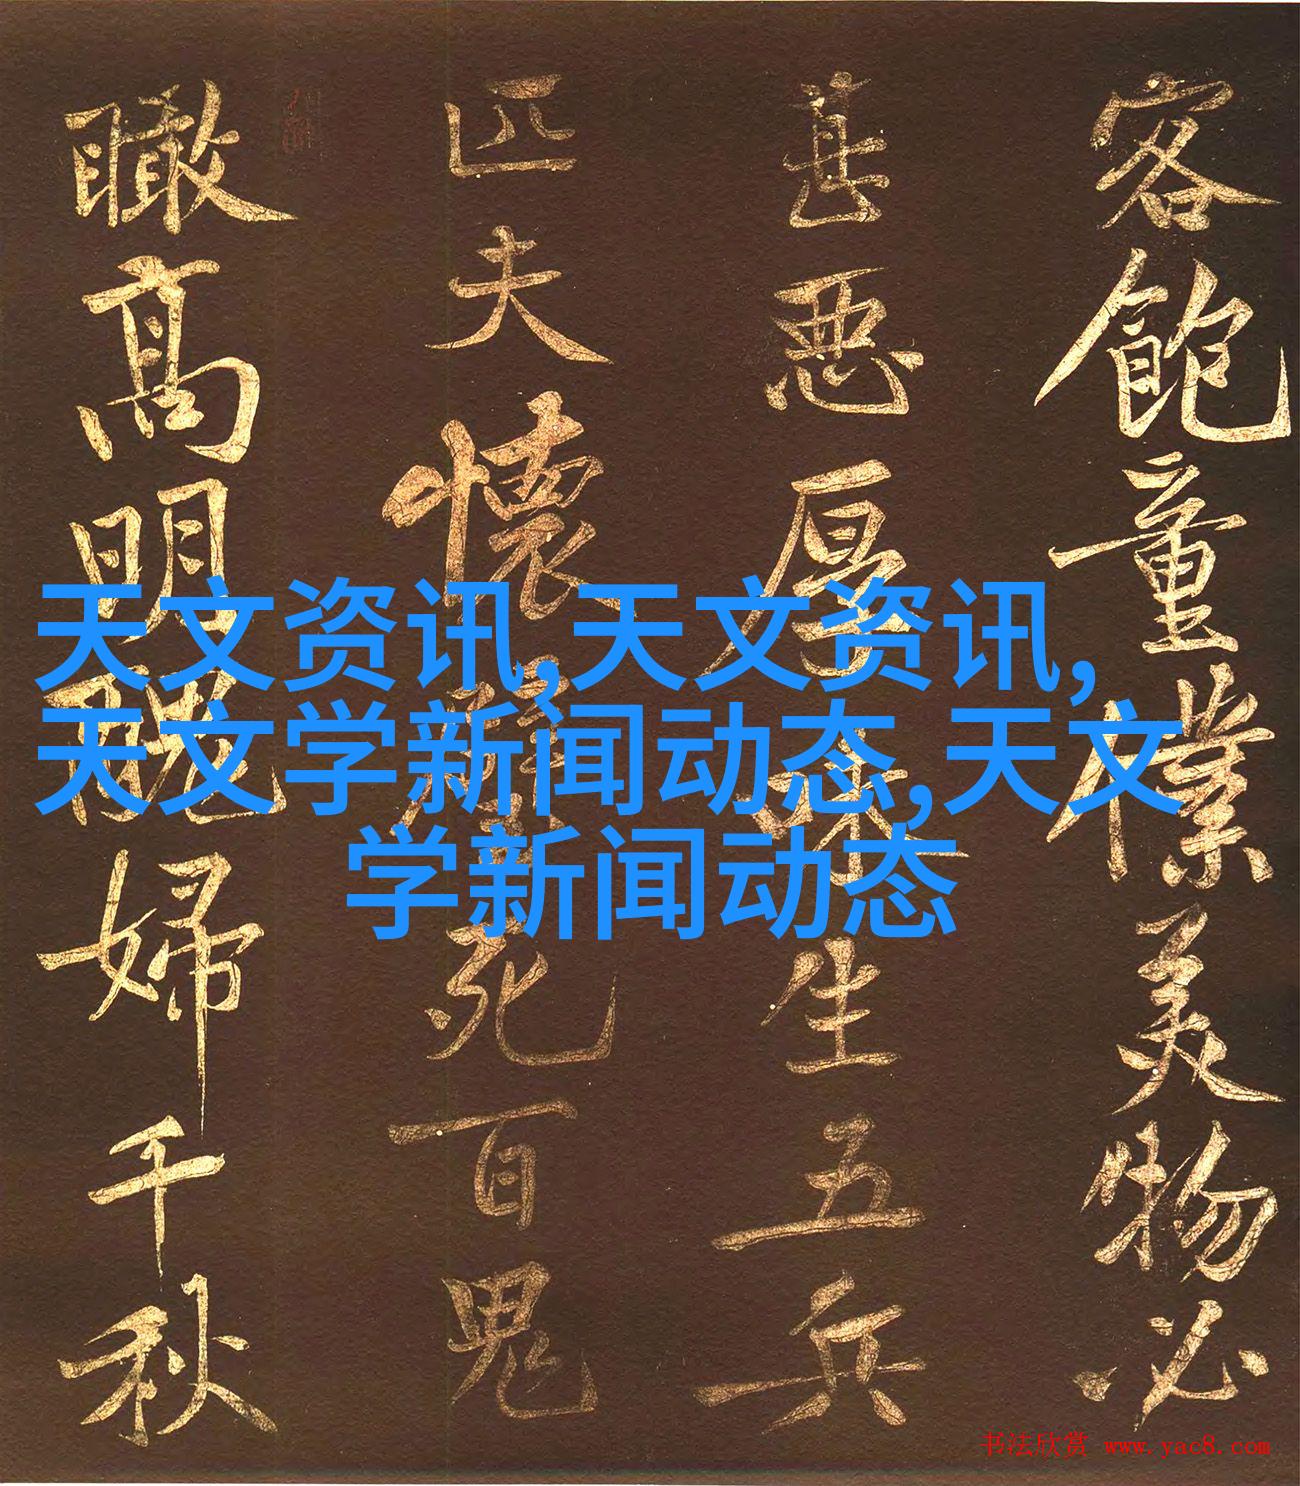 客飽童僕美物必
甚惡厚味生五兵
匹夫懷璧死百鬼
瞰高明醜婦千秋
天文资讯,天文资讯,
天文学新闻动态,天文
学新闻动态
书法欣赏 www.yac8.com